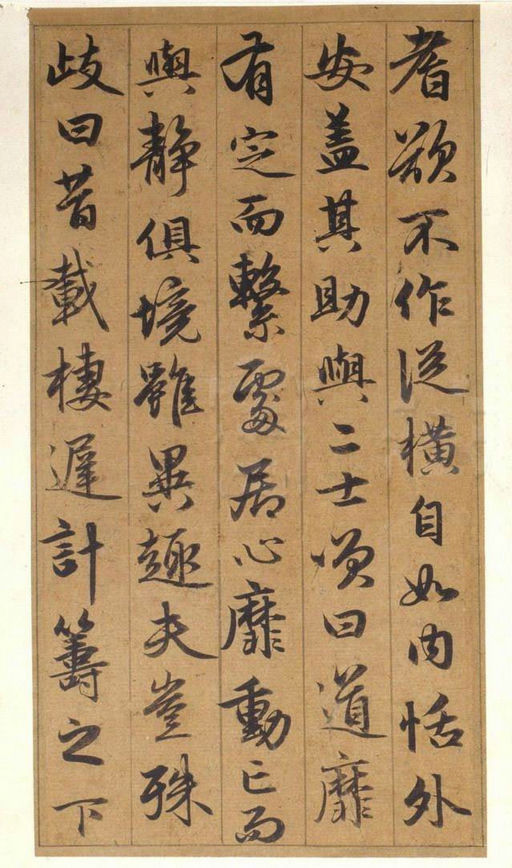 耆欲不作從橫自如內恬外
安蓋其助與二士頌曰道靡
有定而繫處居心靡動亡而
與靜俱境雖異趣夫豈殊
歧曰昔載棲遲計籌之下